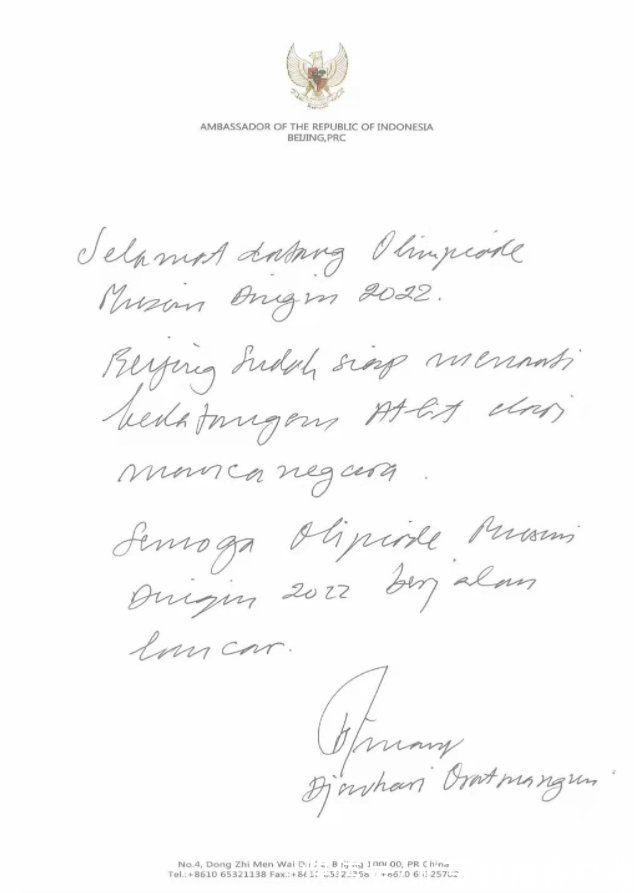 AMBASSADOR OF THE REPUBLIC OF INDONESIA
BEIJING,PRC
Selamat datang Olimpiade
Musim Dingin 2022.
Beijing Sudah siap menanti
kedatangan Atlit dari
manca negara.
Semoga Olipiade Musim
Dingin 2022 berjalan
lancar.
Djauhari Oratmangun
No.4, Dong Zhi Men Wai Beijing 00, PR China
Tel.:+8610 65321138 Fax.: